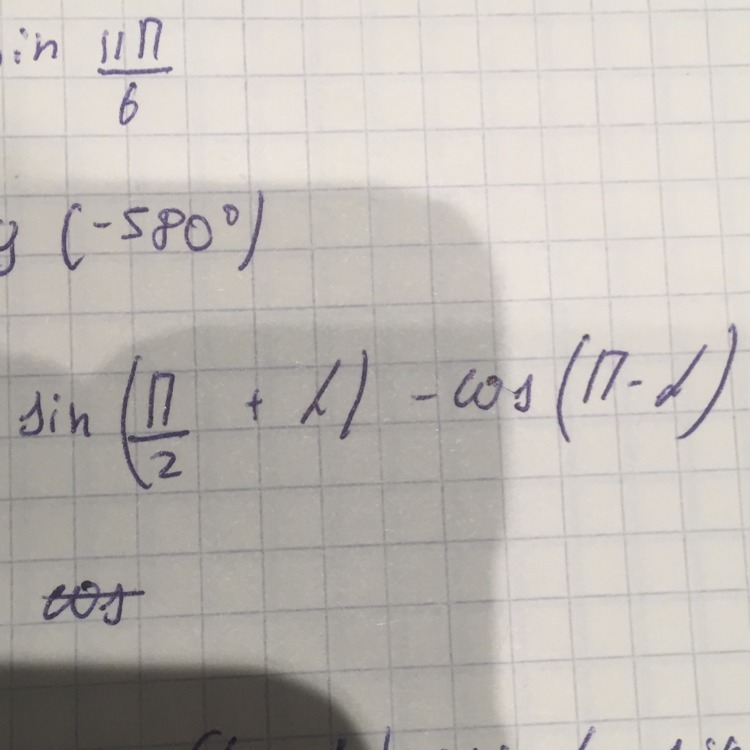 in 11π/6
g (-580°)
sin (π/2 + α) - cos (π - α)
cos